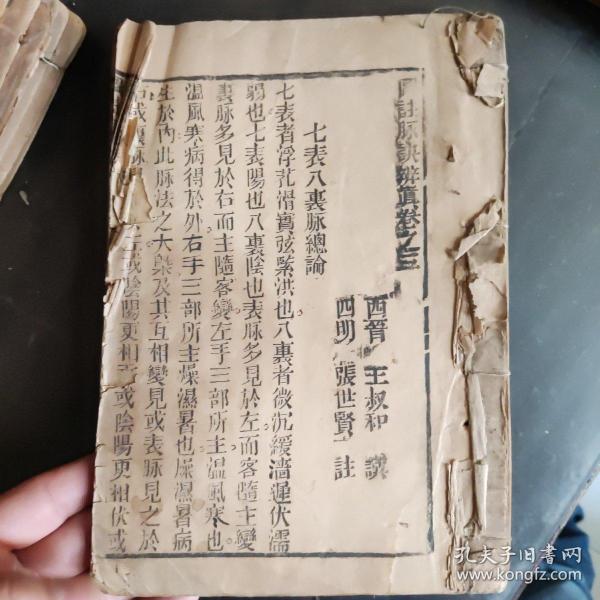 圖註脉訣辨真卷之三
西晉 王叔和 譔
四明 張世賢 註
七表八裏脉總論
七表者浮芤滑實弦緊洪也八裏者微沉緩濇遲伏濡
弱也七表陽也八裏陰也表脉多見於左而客隨主變
裏脉多見於右而主隨客變左手三部所主溫風寒也
溫風寒病得於外右手三部所主燥濕暑也燥濕暑病
生於內此脉法之大槩及其互相變見或表脉見之於
右或裏脉 左或陰陽更相 或陰陽更相伏或
孔夫子旧书网
www.kongfz.com